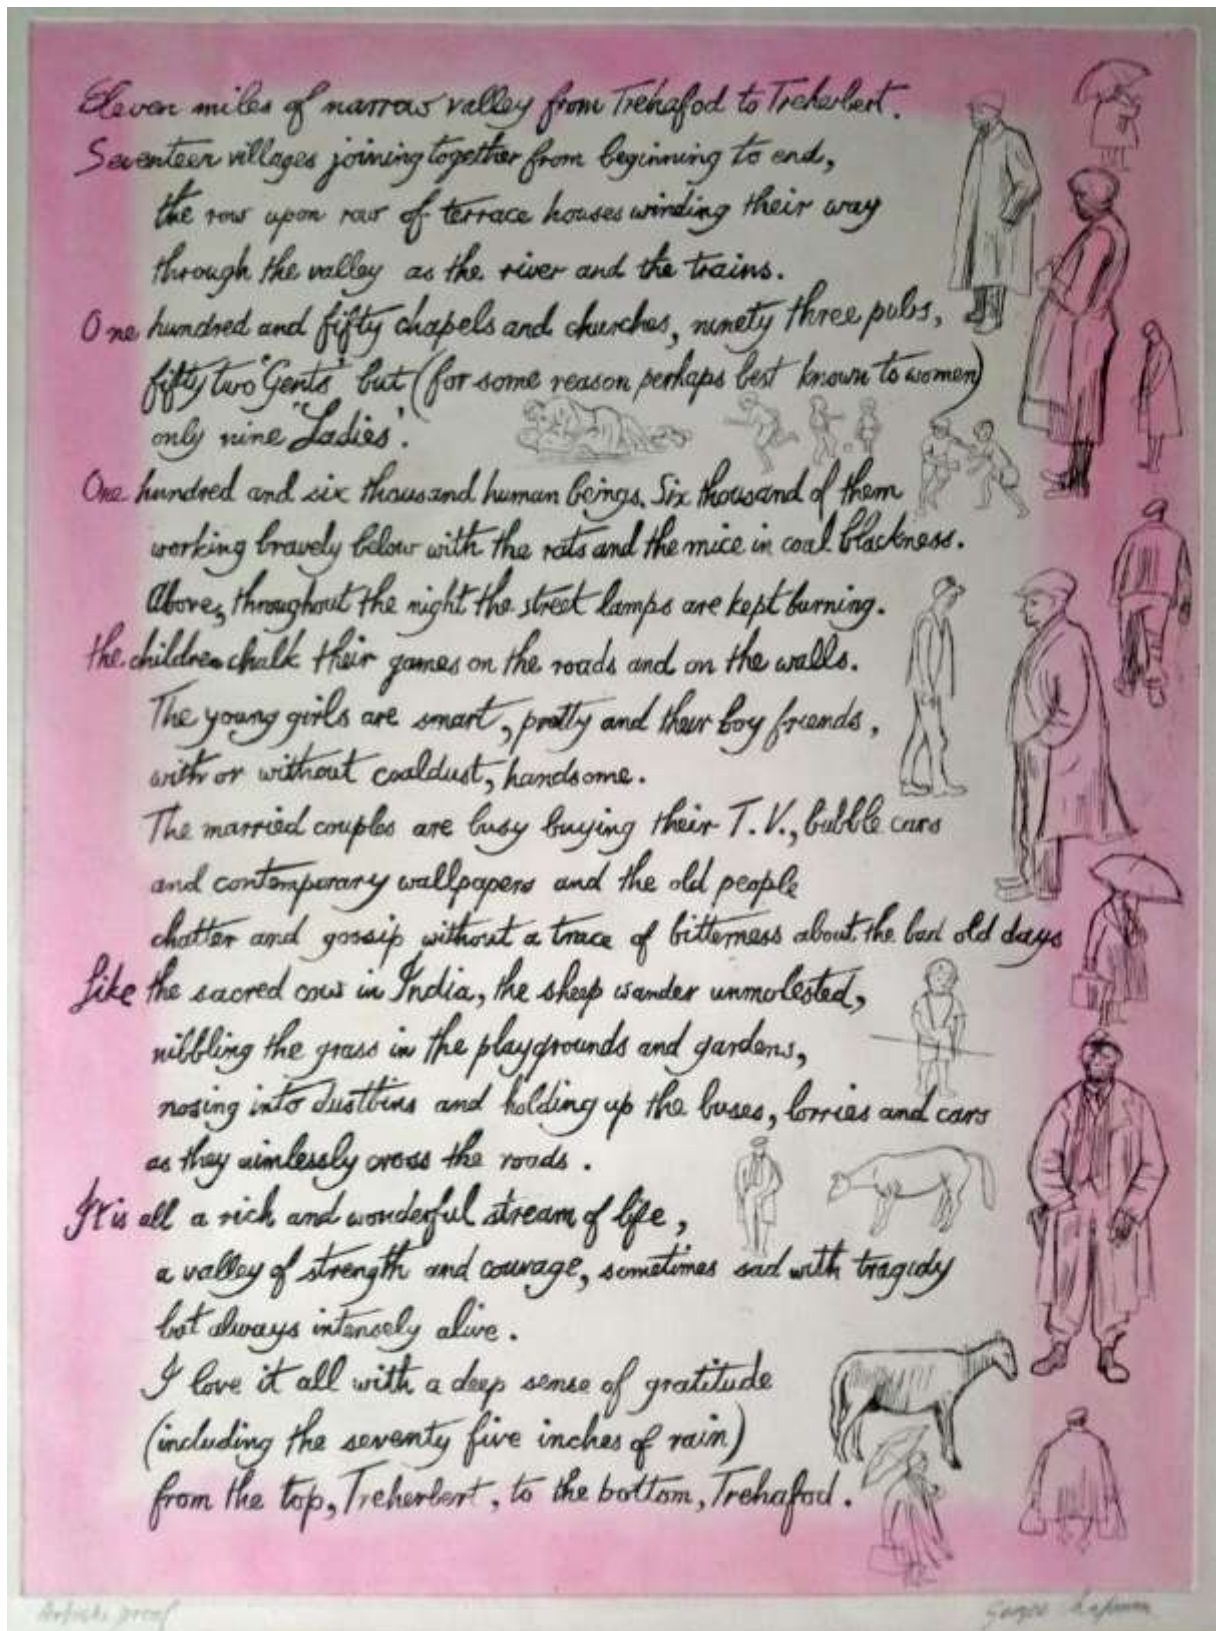 Eleven miles of narrow valley from Trehafod to Treherbert.
Seventeen villages joining together from beginning to end,
the row upon row of terrace houses winding their way
through the valley as the river and the trains.
One hundred and fifty chapels and churches, ninety three pubs,
fifty two "Gents" but (for some reason perhaps best known to women)
only nine "Ladies".
One hundred and six thousand human beings. Six thousand of them
working bravely below with the rats and the mice in coal blackness.
Above, throughout the night the street lamps are kept burning.
the children chalk their games on the roads and on the walls.
The young girls are smart, pretty and their boy friends,
with or without coaldust, handsome.
The married couples are busy buying their T.V., bubble cars
and contemporary wallpapers and the old people
chatter and gossip without a trace of bitterness about the bad old days
Like the sacred cow in India, the sheep wander unmolested,
nibbling the grass in the playgrounds and gardens,
nosing into dustbins and holding up the buses, lorries and cars
as they aimlessly cross the roads.
It is all a rich and wonderful stream of life,
a valley of strength and courage, sometimes sad with tragidy
but always intensely alive.
I love it all with a deep sense of gratitude
(including the seventy five inches of rain)
from the top, Treherbert, to the bottom, Trehafod.
Artists proof
George Chapman